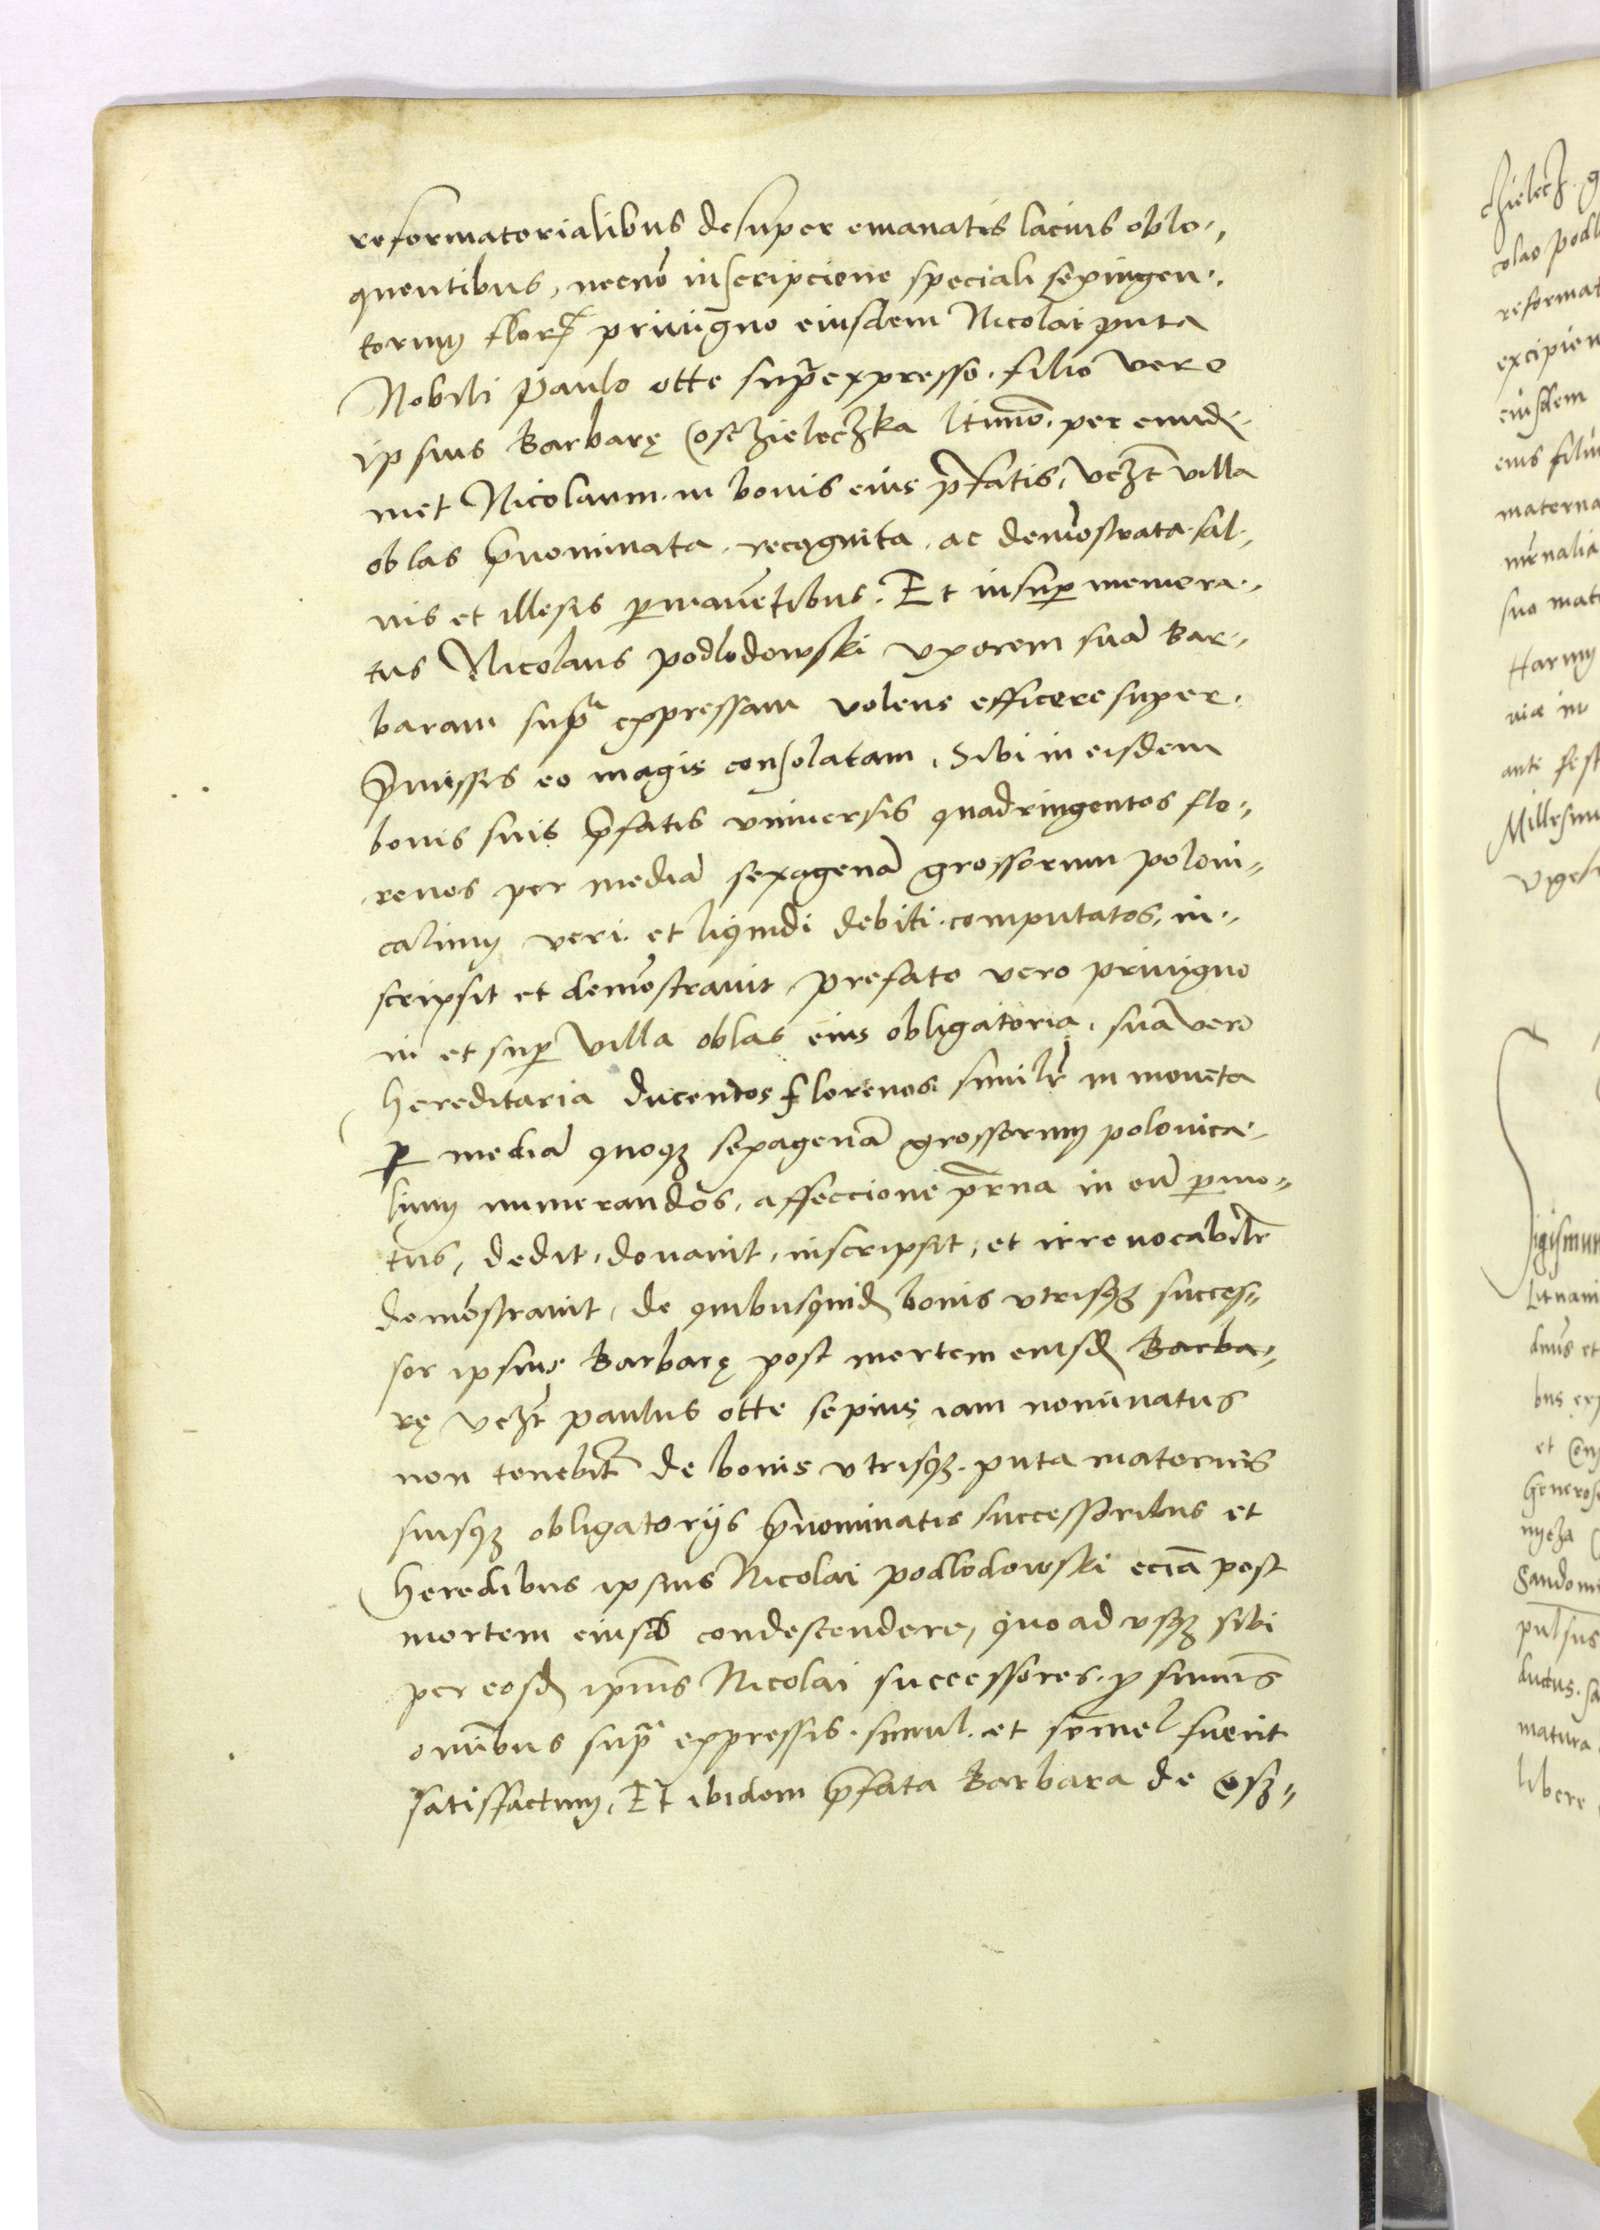 reformatorialibus desuper emanatis lacius oblo-
quentibus, necnō inscripcione speciali sexingen-
torum florꝝ privigno eiusdem Nicolai puta
Nobili Paulo otte supra expresso. filio vero
ipsius Barbarę Oschzieleczka ltimo. per eund-
met Nicolaum. in bonis eius p̄fatis, vczt villa
oblas p̄nominata. recognita. ac demōstrata. sal-
vis et illesis ꝑmanētibus. Et insuꝑ memora-
tus Nicolaus podlodowski vxorem suā Bar-
baram supra expressam volens efficere super
p̄missis eo magis consolatam. Sibi in eisdem
bonis suis p̄fatis vniversis quadringentos flo-
renos per mediā sexagenā grossorum poloni-
calium veri. et liquidi debiti. computatos, in-
scripsit et demōstravit. prefato vero privigno
in et suꝑ villa oblas eius obligatoria. sua vero
hereditaria ducentos florenos similr̄ in moneta
ꝑ mediā quoqȝ sexagenā grossorum polonica-
lium numerandos. affeccione pr̄na in eū ꝑmo-
tus, dedit. donavit. inscripsit, et irrevocabilr̄
demōstravit, de quibusquid bonis vtrisqȝ succes-
sor ipsius Barbarę post mortem eiusd Barba-
rę vczt paulus otte sepius iam nominatus
non tenebitr de bonis vtrisqȝ. puta maternis
suisqȝ obligatorijs p̄nominatis successoribus et
heredibus ipsius Nicolai podlodowski eciā post
mortem eiusd condescendere, quo ad vsqȝ sibi
per eosd ipius Nicolai successores. ꝓ summis
omībus supra expressis. simul. et semel fuerit
satisfactum, Et ibidem p̄fata Barbara de Osz-

chzielecz. g
colao podl
reformat
excipien
eiusdem
eius filiu
materna
suo mat
Harum
nie in
ante fest
Millesim
vgesi
Sigismun
Lituani
dnus et
bus exp
Generos
Sandomi
pulsus
ductus. sa
matura
libere